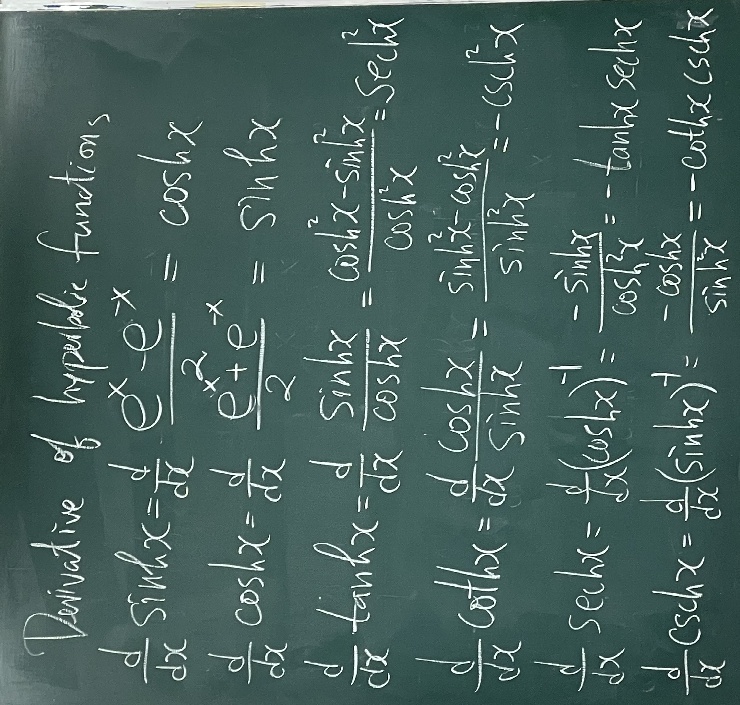 Derivative of hyperbolic functions
d/dx sinhx = d/dx (e^x - e^-x)/2 = coshx
d/dx coshx = d/dx (e^x + e^-x)/2 = sinhx
d/dx tanhx = d/dx sinhx/coshx = (cosh²x - sinh²x)/cosh²x = sech²x
d/dx cothx = d/dx coshx/sinhx = (sinh²x - cosh²x)/sinh²x = -csch²x
d/dx sechx = d/dx (coshx)^-1 = -sinhx/cosh²x = -tanhx sechx
d/dx cschx = d/dx (sinhx)^-1 = -coshx/sinh²x = -cothx cschx